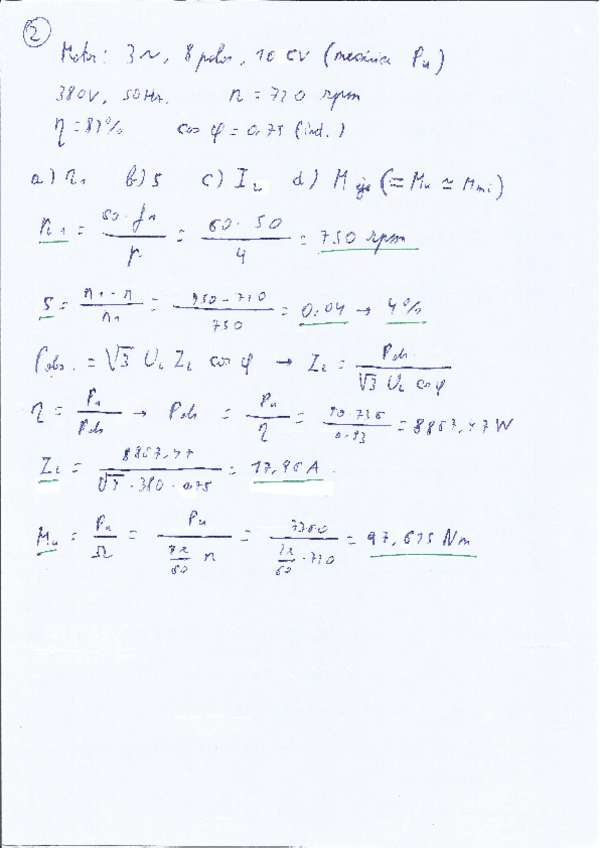 2
Motor: 3~, 8 polos, 10 CV (mecánica Pu)
380V, 50Hz. n = 720 rpm
η = 83% cos φ = 0.75 (ind.)
a) n1 b) S c) IL d) M eje (= Mu ≃ Mmi)
n1 = 60 · f1 / p = 60 · 50 / 4 = 750 rpm
S = n1 - n / n1 = 750 - 720 / 750 = 0.04 → 4%
Pabs. = √3 UL IL cos φ → IL = Pabs. / √3 UL cos φ
η = Pu / Pabs → Pabs = Pu / η = 10·736 / 0.83 = 8867,47 W
IL = 8867,47 / √3 · 380 · 0.75 = 17,96 A
Mu = Pu / Ω = Pu / 2π/60 n = 7360 / 2π/60 · 720 = 97,615 Nm